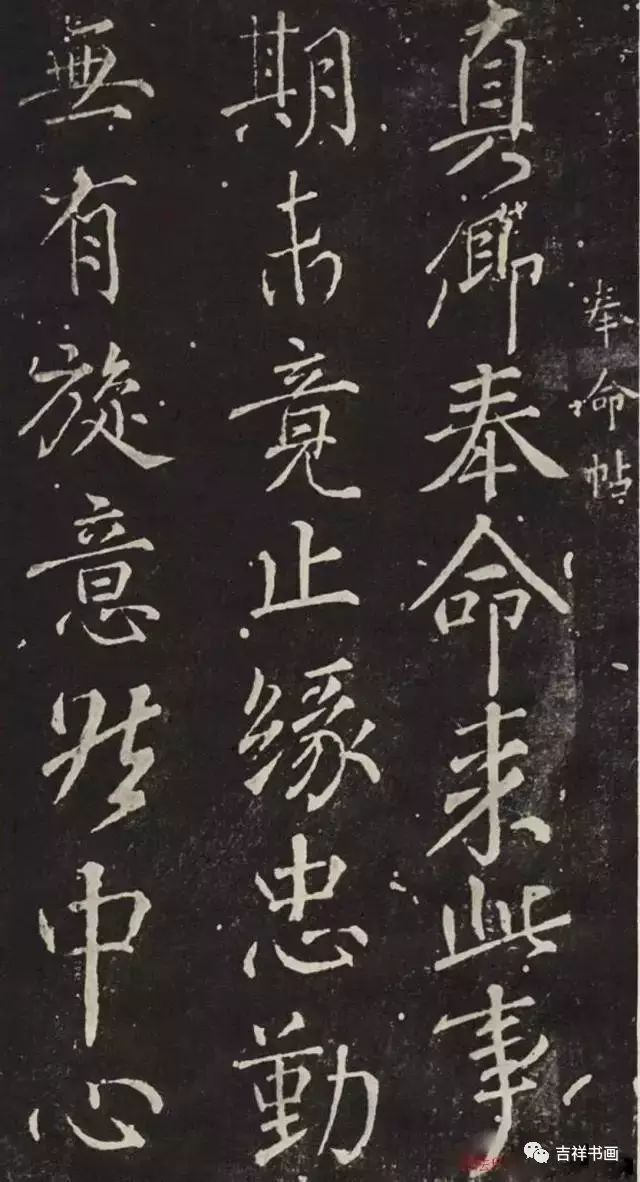 奉命帖
真卿奉命来此事
期未竟止緣忠勤
無有旋意然中心
吉祥书画